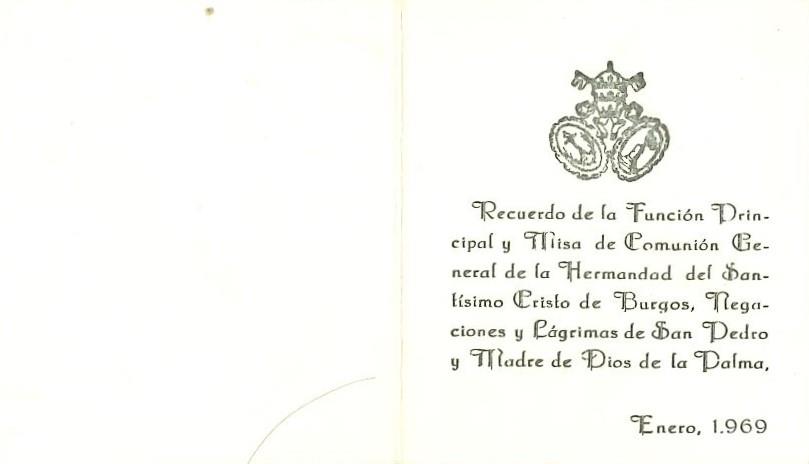 Recuerdo de la Función Prin-
cipal y Misa de Comunión Ge-
neral de la Hermandad del San-
tísimo Cristo de Burgos, Nega-
ciones y Lágrimas de San Pedro
y Madre de Dios de la Palma,
Enero, 1.969